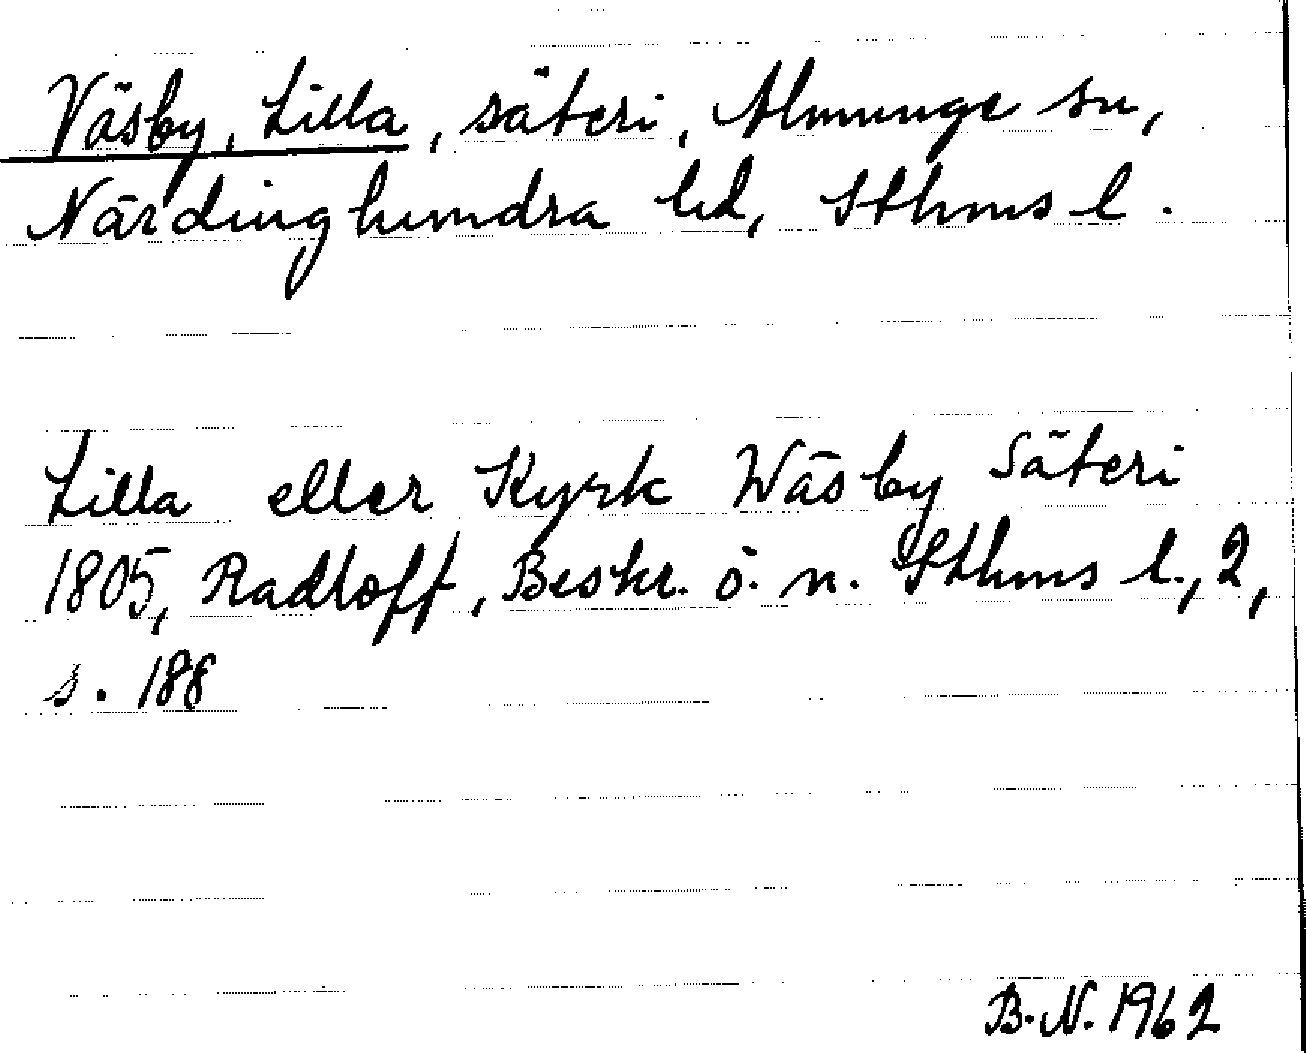 Väsby, Lilla, säteri, Almunge sn,
Närdinghundra hd, Sthms l.
Lilla eller Kyrk Wäsby Säteri
1805, Radloff, Beskr. ö. n. Sthms l., 2,
s. 188
B.N. 1962